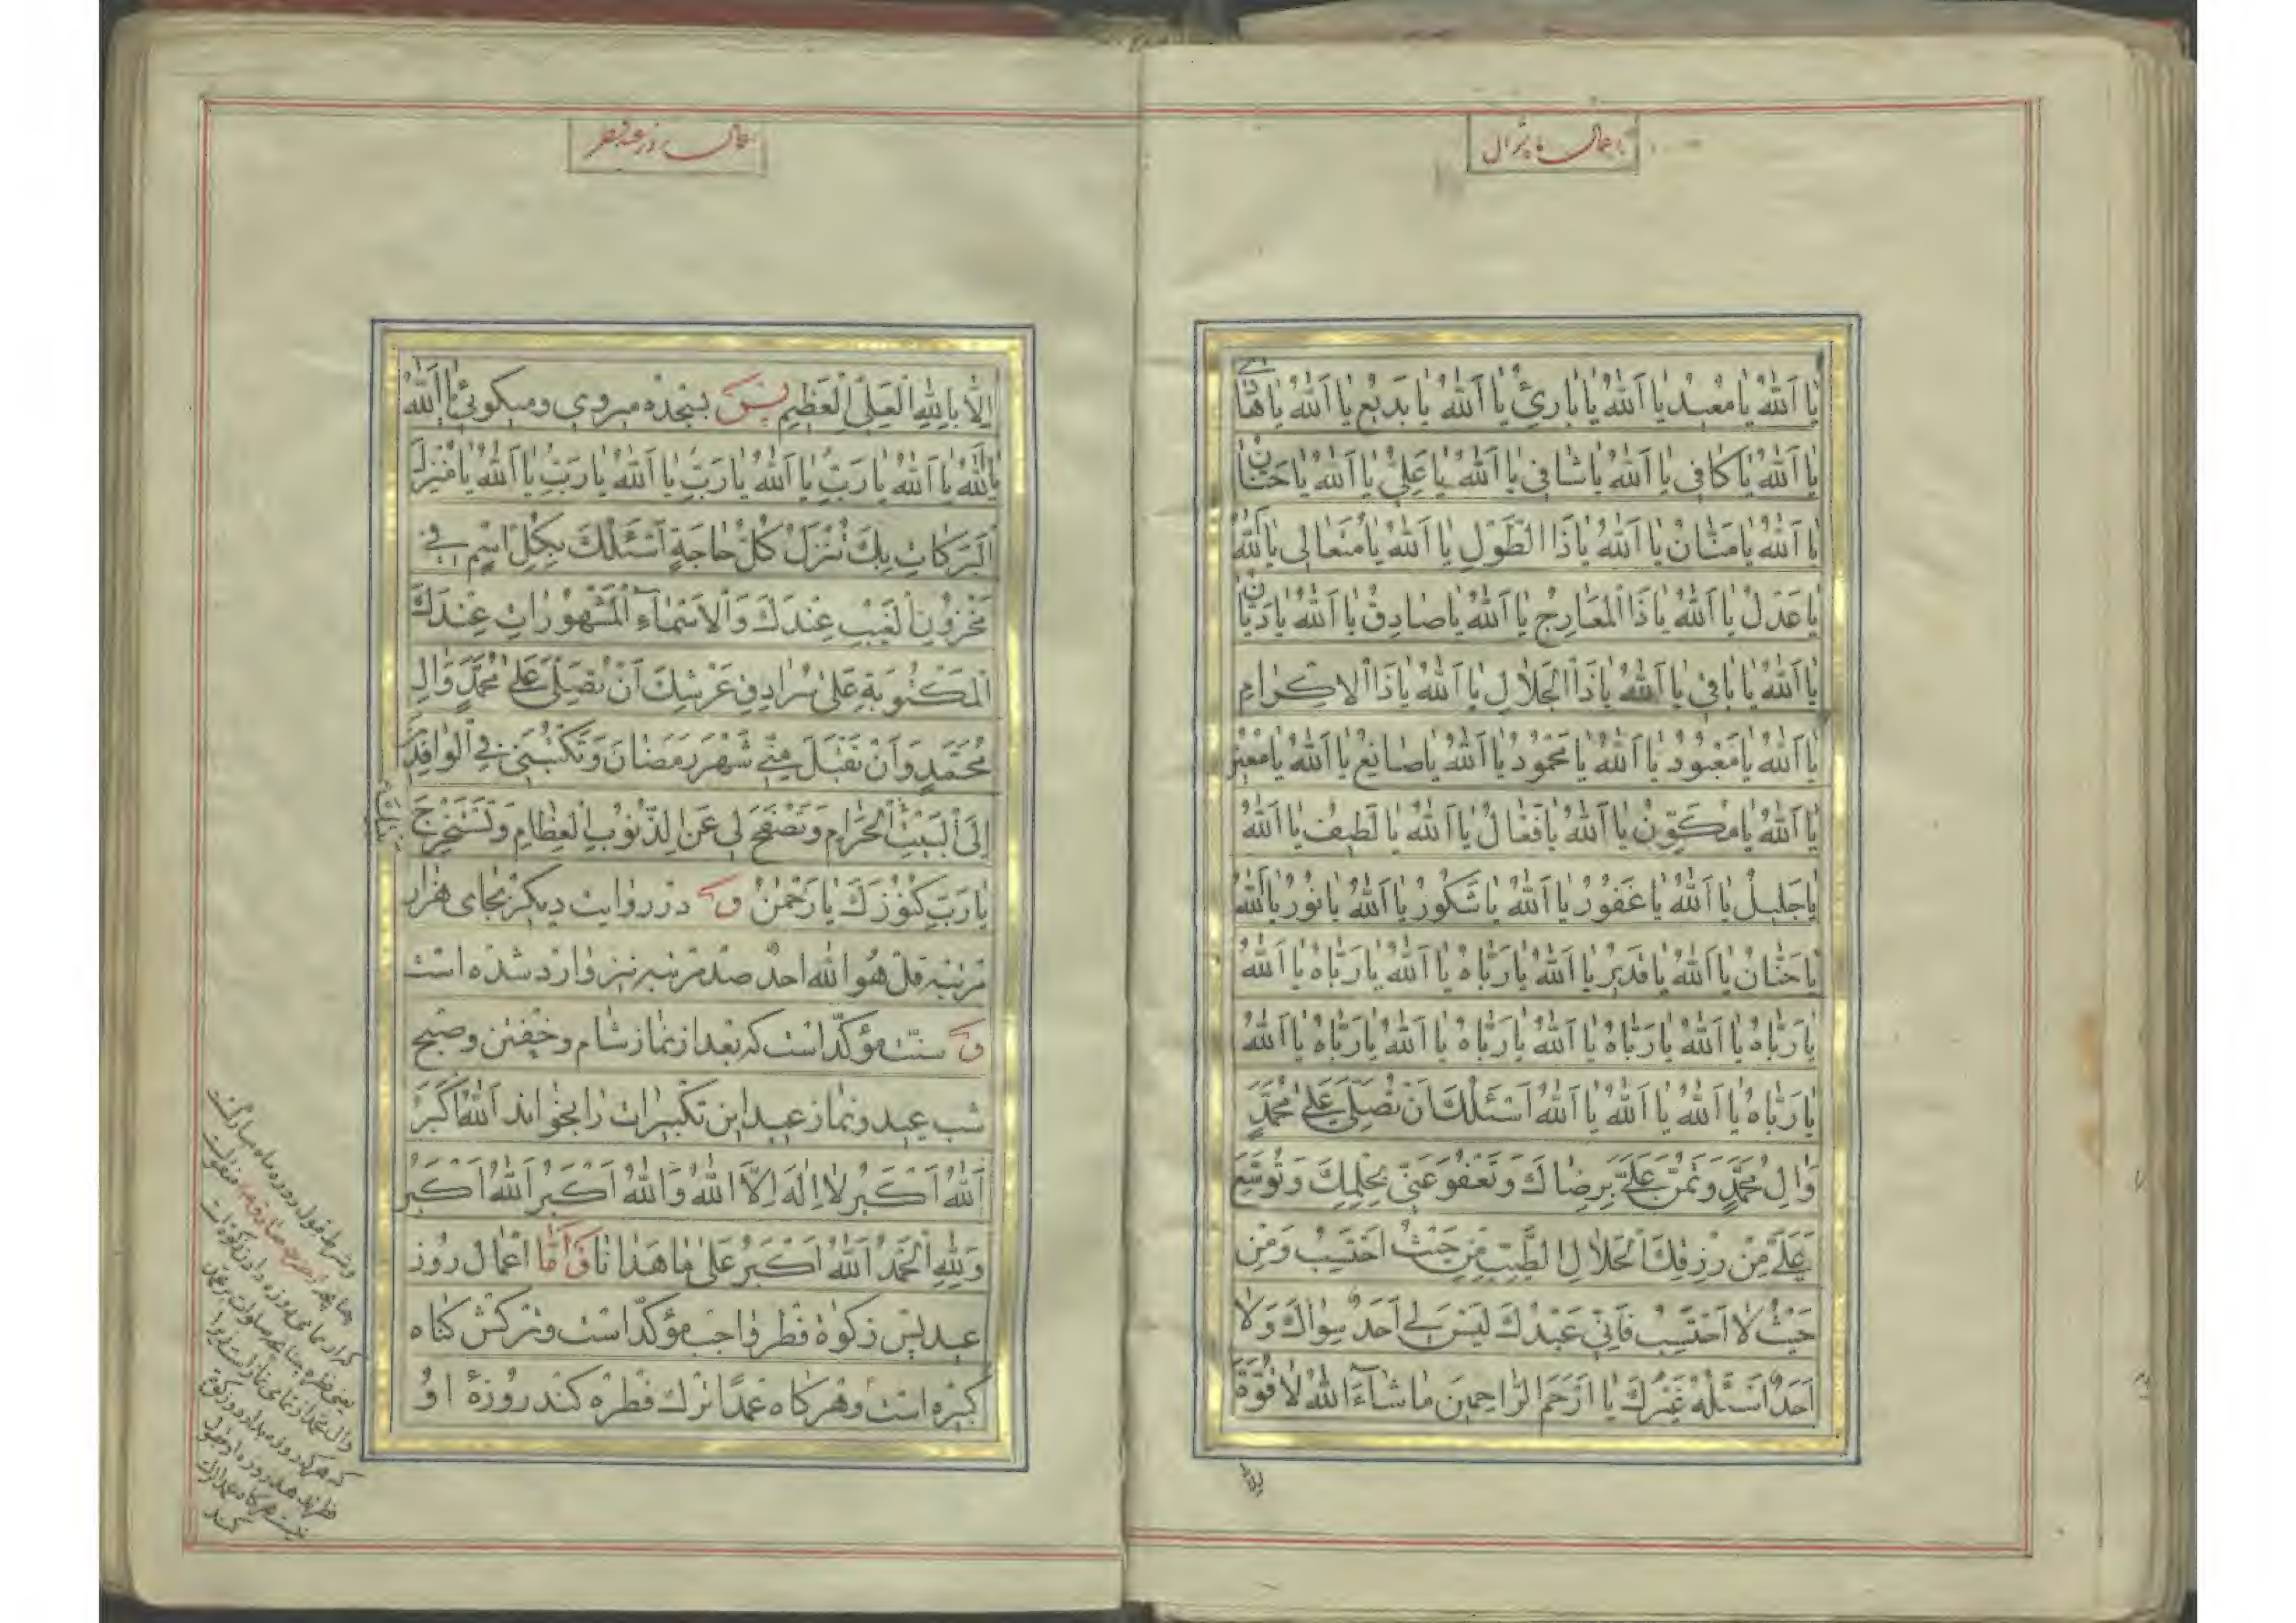 اعمال ماه شوال
یا اَللّٰهُ یا مُعیدُ یا اَللّٰهُ یا بارِئُ یا اَللّٰهُ یا بَدیعُ یا اَللّٰهُ یا هادی
یا اَللّٰهُ یا کافی یا اَللّٰهُ یا شافی یا اَللّٰهُ یا عَلِیُّ یا اَللّٰهُ یا حَنّانُ
یا اَللّٰهُ یا مَنّانُ یا اَللّٰهُ یا ذَا الطَّوْلِ یا اَللّٰهُ یا مُتَعالی یا اَللّٰهُ
یا عَدْلُ یا اَللّٰهُ یا ذَا الْمَعارِجِ یا اَللّٰهُ یا صادِقُ یا اَللّٰهُ یا دَیّانُ
یا اَللّٰهُ یا باقی یا اَللّٰهُ یا ذَا الْجَلالِ یا اَللّٰهُ یا ذَا الْاِکْرامِ
یا اَللّٰهُ یا مَعْبُودُ یا اَللّٰهُ یا مَحْمُودُ یا اَللّٰهُ یا صانِعُ یا اَللّٰهُ یا مُعینُ
یا اَللّٰهُ یا مُکَوِّنُ یا اَللّٰهُ یا فَعّالُ یا اَللّٰهُ یا لَطیفُ یا اَللّٰهُ
یا جَلیلُ یا اَللّٰهُ یا غَفُورُ یا اَللّٰهُ یا شَکُورُ یا اَللّٰهُ یا نُورُ یا اَللّٰهُ
یا حَنّانُ یا اَللّٰهُ یا قَدیرُ یا اَللّٰهُ یا رَبّاهُ یا اَللّٰهُ یا رَبّاهُ یا اَللّٰهُ
یا رَبّاهُ یا اَللّٰهُ یا رَبّاهُ یا اَللّٰهُ یا رَبّاهُ یا اَللّٰهُ یا رَبّاهُ یا اَللّٰهُ
یا رَبّاهُ یا اَللّٰهُ یا اَللّٰهُ یا اَللّٰهُ اَسْئَلُکَ اَنْ تُصَلِّیَ عَلیٰ مُحَمَّدٍ
وَالِ مُحَمَّدٍ وَتَمُنَّ عَلَیَّ بِرِضاکَ وَتَعْفُوَ عَنّی بِحِلْمِکَ وَتُوَسِّعَ
عَلَیَّ مِنْ رِزْقِکَ الْحَلالِ الطَّیِّبِ مِنْ حَیْثُ اَحْتَسِبُ وَمِنْ
حَیْثُ لا اَحْتَسِبُ فَاِنّی عَبْدُکَ لَیْسَ لی اَحَدٌ سِواکَ وَلا
اَحَدٌ اَسْئَلُهُ غَیْرُکَ یا اَرْحَمَ الرّاحِمینَ ماشاءَ اللّٰهُ لا قُوَّةَ
اعمال روز عید فطر
اِلّا بِاللّٰهِ الْعَلِیِّ الْعَظیمِ پس بسجده میروی ومیکوئی یا اَللّٰهُ
یا اَللّٰهُ یا اَللّٰهُ یا رَبِّ یا اَللّٰهُ یا رَبِّ یا اَللّٰهُ یا رَبِّ یا اَللّٰهُ یا مُنْزِلَ
الْبَرَکاتِ بِکَ تُنْزَلُ کُلُّ حاجَةٍ اَسْئَلُکَ بِکُلِّ اسْمٍ فی
مَخْزُونِ الْغَیْبِ عِنْدَکَ وَالْاَسْماءِ الْمَشْهُوراتِ عِنْدَکَ
الْمَکْتُوبَةِ عَلیٰ سُرادِقِ عَرْشِکَ اَنْ تُصَلِّیَ عَلیٰ مُحَمَّدٍ وَالِ
مُحَمَّدٍ وَاَنْ تَقْبَلَ مِنّی شَهْرَ رَمَضانَ وَتَکْتُبَنی فِی الْوافِدینَ
اِلَی الْبَیْتِ الْحَرامِ وَتَصْفَحَ لی عَنِ الذُّنُوبِ الْعِظامِ وَتَسْتَخْرِجَ
یا رَبِّ کُنُوزَکَ یا رَحْمٰنُ و در روایت دیکر بجای هزار
مرتبه قل هو الله احد صد مرتبه نیز وارد شده است
و سنت مؤکّد است که بعد از نماز شام وخفتن وصبح
شب عید ونماز عید این تکبیرات را بخواند اَللّٰهُ اَکْبَرُ
اَللّٰهُ اَکْبَرُ لا اِلٰهَ اِلَّا اللّٰهُ وَاللّٰهُ اَکْبَرُ اَللّٰهُ اَکْبَرُ
وَلِلّٰهِ الْحَمْدُ اَللّٰهُ اَکْبَرُ عَلیٰ ما هَدانا وامّا اعمال روز
عید پس زکوة فطر واجب مؤکّد است وترکش کناه
کبیره است وهرکاه عمدًا ترک فطره کند روزۀ او
وشرط قبول روزه ماه مبارکست
کند